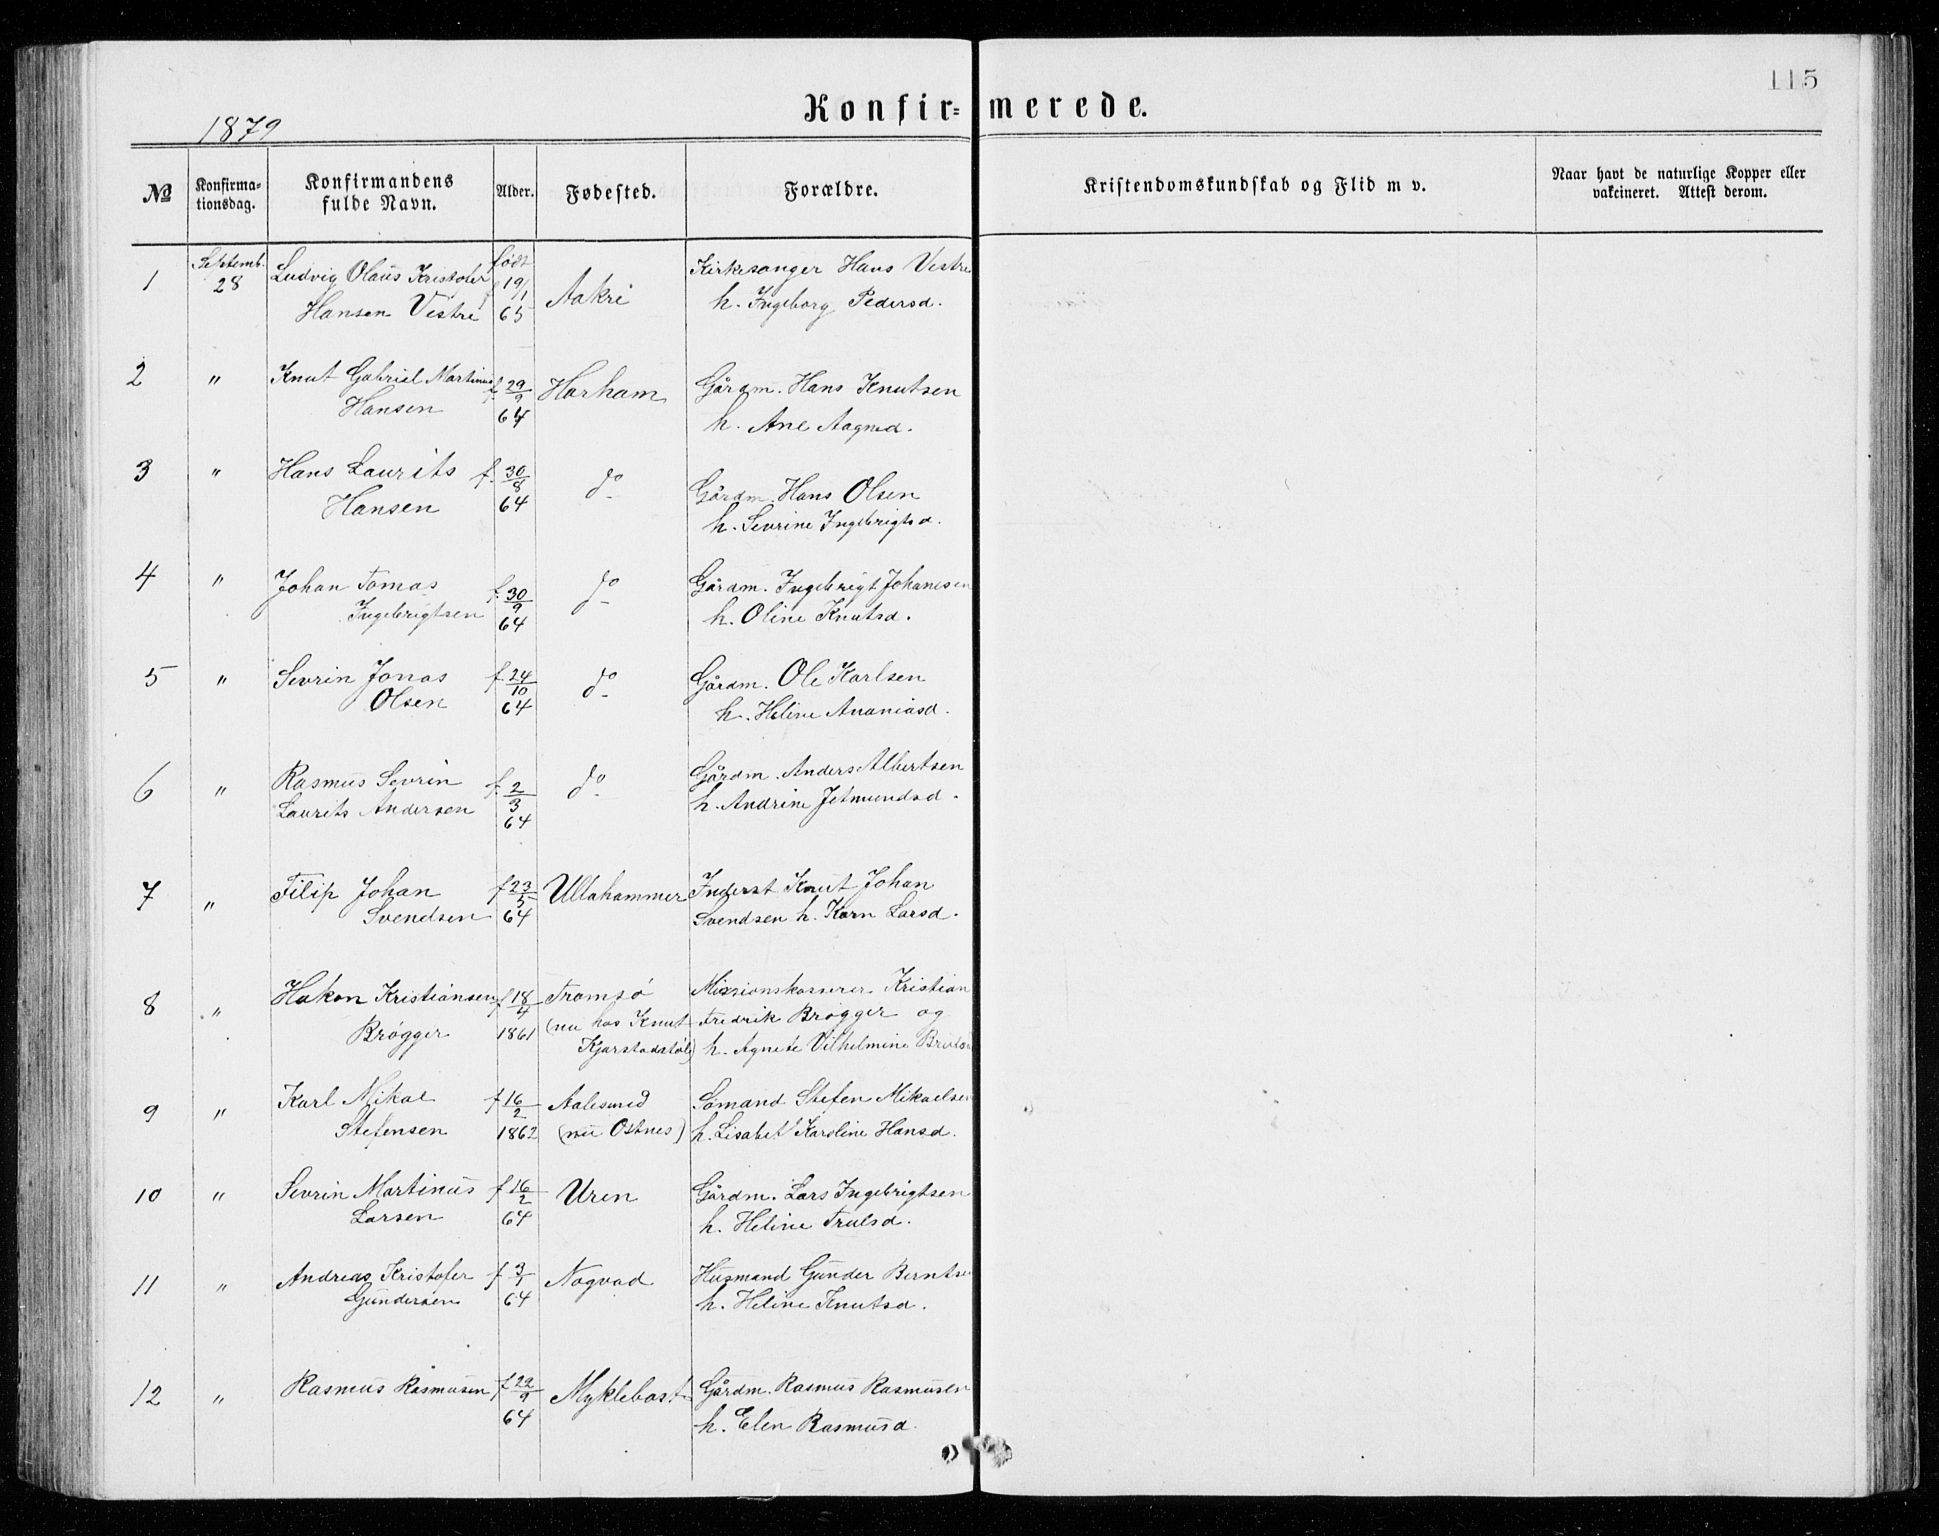 115
Konfir= merede.
1879
No
Konfirma-
tionsdag.
Konfirmandens
fulde Navn.
Alder.
Fødested.
Forældre.
Kristendomskundskab og Flid m v.
Naar havt de naturlige Kopper eller
vakcineret. Attest derom.
1 Septemb. 28 Ludvig Olaus Kristofer født 19/1 65 Aakre Kirkesanger Hans Vestre
Hansen Vestre h. Ingeborg Pedersd.
2 " Knut Gabriel Martinus f. 29/9 64 Harham Gårdm. Hans Knutsen
Hansen h. Ane Aagesd.
3 " Hans Laurits f. 30/8 64 do Gårdm. Hans Olsen
Hansen h. Sevrine Ingebrigtsd.
4 " Johan Tomas f. 30/9 64 do Gårdm. Ingebrigt Johanesen
Ingebrigtsen h. Oline Knutsd.
5 " Sevrin Jonas f. 24/10 64 do Gårdm. Ole Karlsen
Olsen h. Heline Ananiasd.
6 " Rasmus Sevrin f. 2/3 64 do Gårdm. Anders Albertsen
Laurits Andersen h. Andrine Jetmundsd.
7 " Filip Johan f 23/5 64 Ullahammer Inderst Knut Johan
Svendsen Svendsen h. Karn Larsd.
8 " Hakon Kristiansen f 18/4 1861 Tromsø Missionskasserer Kristian
Brøgger (nu hos Knut Fredrik Brøgger og
Kjærstadstøle) h. Agnete Vilhelmine
9 " Karl Mikal f 16/2 1862 Aalesund Sømand Stefen Mikaelsen
Stefensen (nu Ostnes) h. Lisabet Karoline Hansd.
10 " Sevrin Martinus f 16/2 64 Uren Gårdm. Lars Ingebrigtsen
Larsen h. Heline Trulsd.
11 " Andreas Kristofer f 3/1 64 Nogvad Husmand Gunder Berntsen
Gundersen h. Heline Knutsd.
12 " Rasmus Rasmusen f 22/9 64 Myklebost Gårdm. Rasmus Rasmusen
h. Elen Rasmusd.